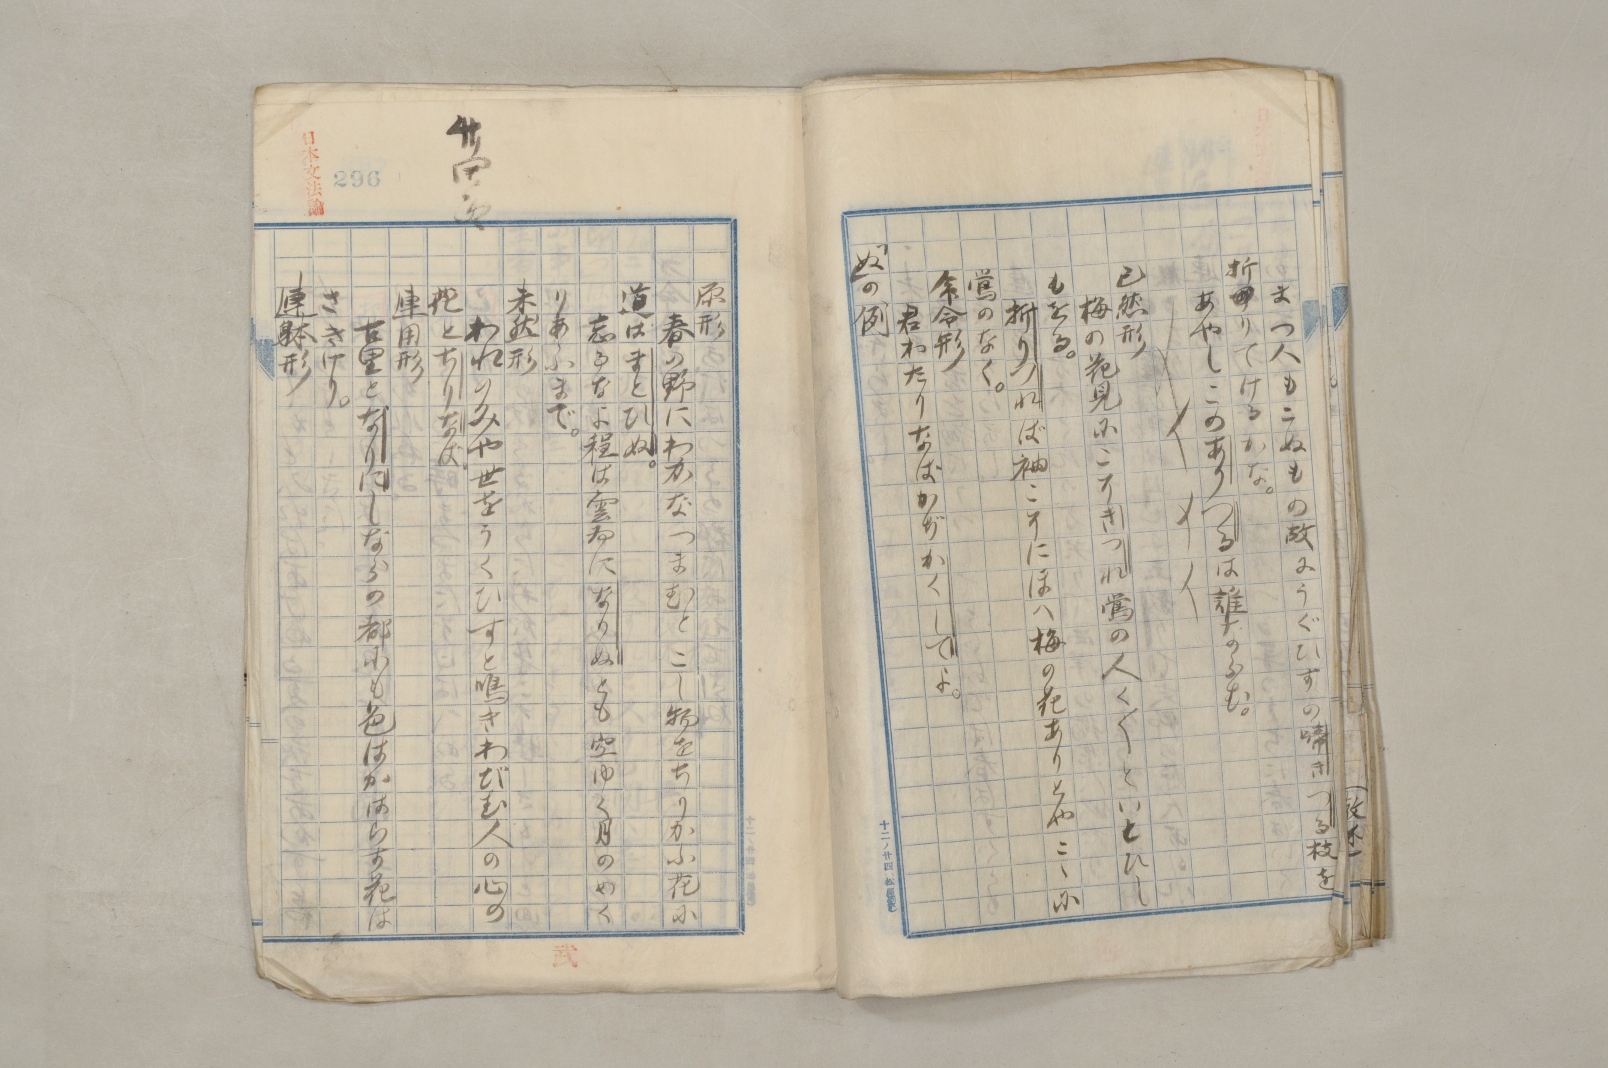 まつ人もこぬもの故にうぐひすの啼きつる枝を
折りてけるかな。
あやしこのありつるは誰ナのらむ。
已然形
梅の花見にこそきつれ鶯の人くくといとひし
もをる。
折りつれば袖こそにほへ梅の花ありとやこゝに
鶯のなく。
命令形
君わたりなばかぢかくしてよ。
「ぬ」の例
日本文法論
296
廿四
原形
春の野にわかなつまむとこし物をちりかふ花に
道はまとひぬ。
忘るなよ程は雲ゐになりぬとも空ゆく月のめぐ
りあふまで。
未然形
われのみや世をうくひすと鳴きわびむ人の心の
花とちりなば
連用形
古里となりにしならの都にも色はかはらす花は
さきけり。
連躰形
武
十二ノ廿四